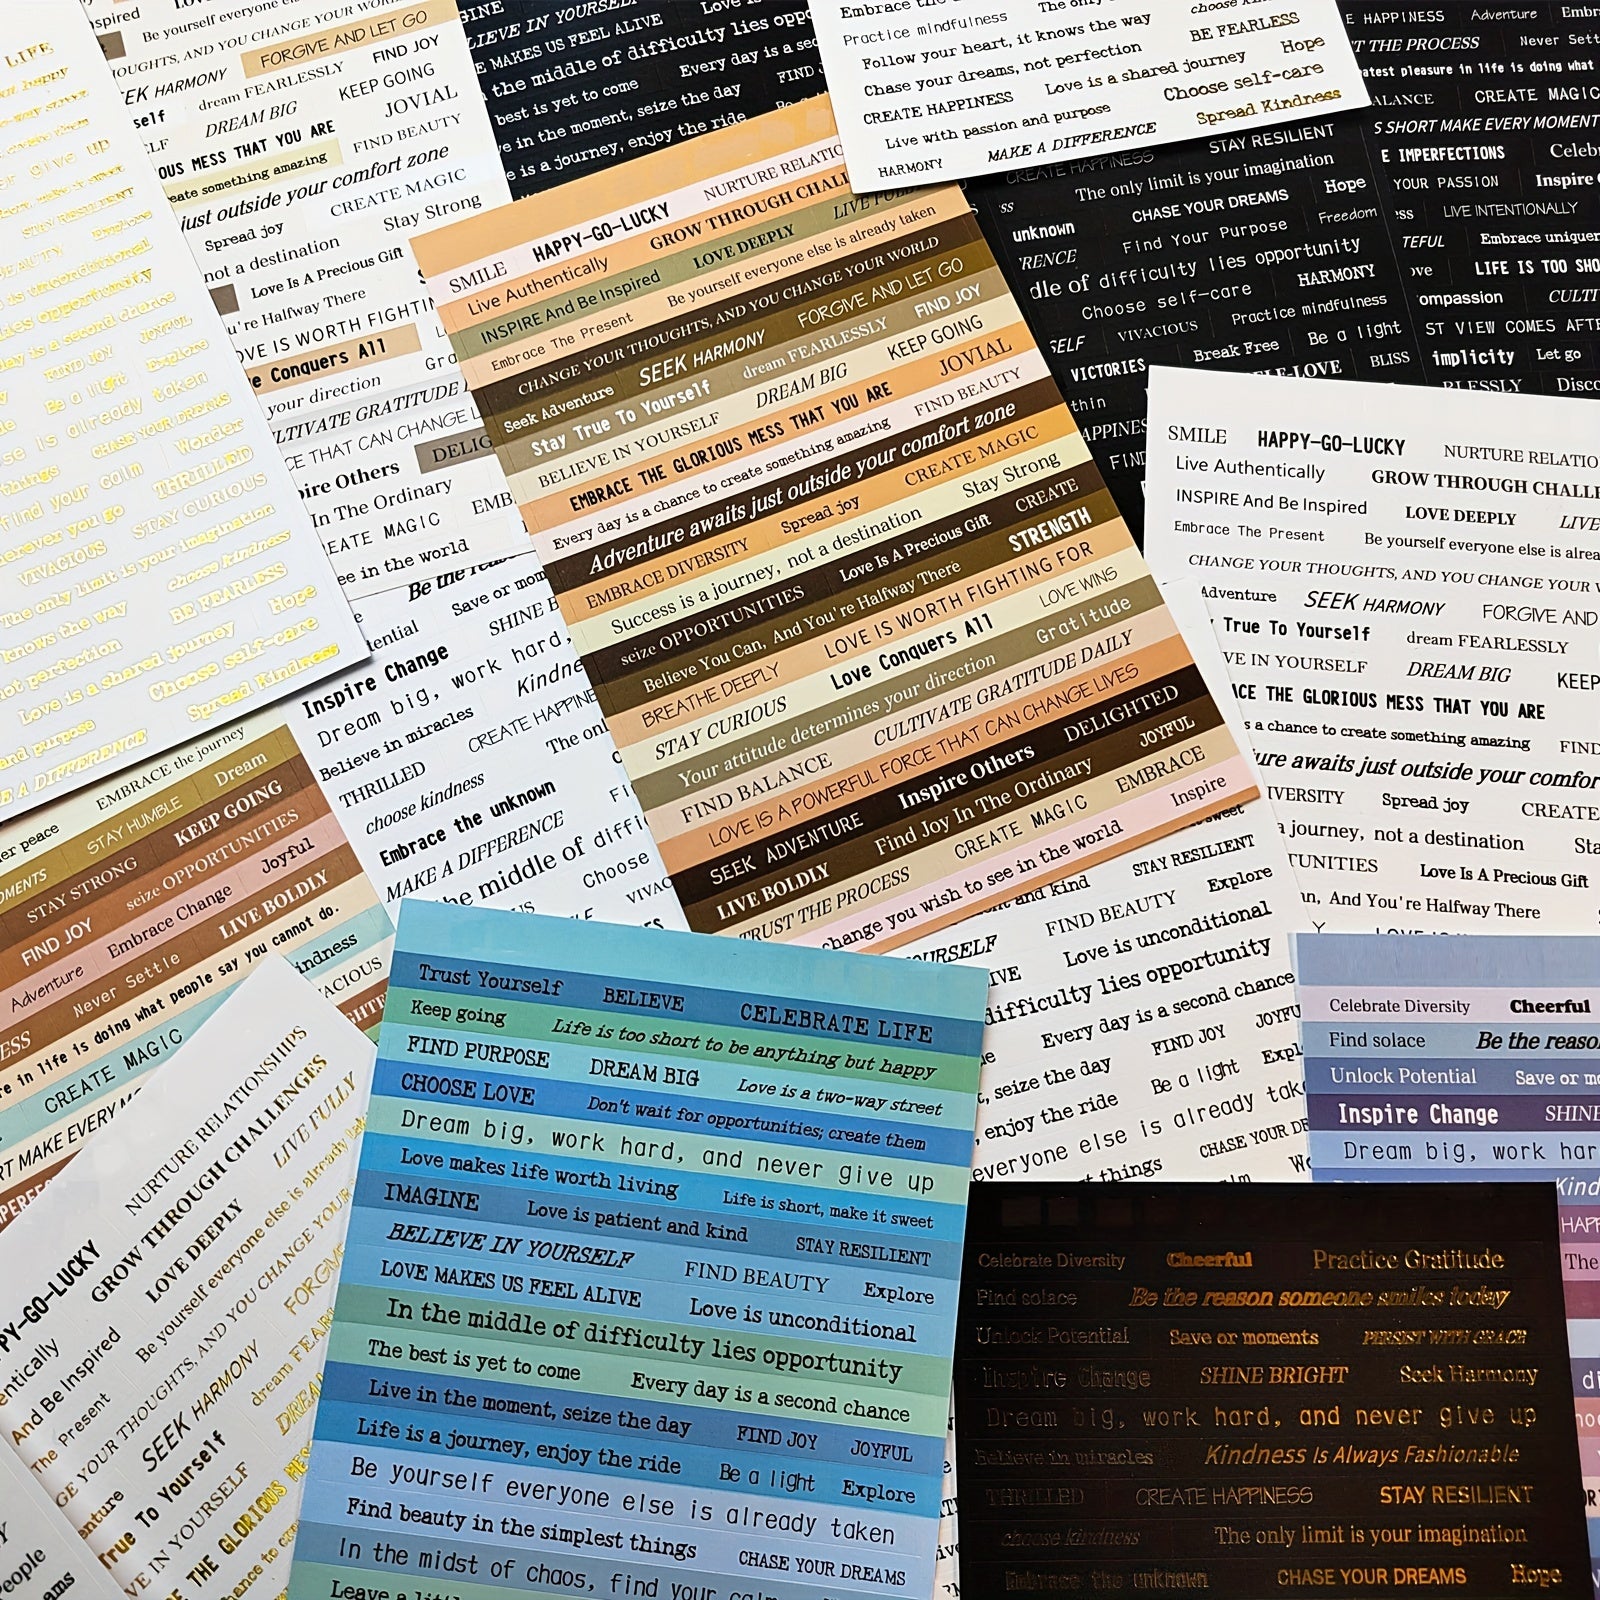 LIFE
up
STAY RESILIENT
is unconditional
lies opportunity
day is a second chance
FIND JOY JOYFUL
Be a light Explore
is already taken
things CHASE YOUR DREAMS
find your calm Wonder
wherever you go THRILLED
VIVACIOUS STAY CURIOUS
The only limit is your imagination
knows the way choose kindness
not perfection BE FEARLESS
Love is a shared journey Hope
and purpose Choose self-care
A DIFFERENCE Spread Kindness
Be yourself everyone
THOUGHTS, AND YOU CHANGE YOUR
FORGIVE AND LET GO
EEK HARMONY
dream FEARLESSLY FIND JOY
self DREAM BIG KEEP GOING
OUS MESS THAT YOU ARE JOVIAL
create something amazing FIND BEAUTY
just outside your comfort zone
Spread joy CREATE MAGIC
not a destination Stay Strong
Love Is A Precious Gift
u're Halfway There
OVE IS WORTH FIGHTIN
e Conquers All
your direction Gra
LTIVATE GRATITUDE
CE THAT CAN CHANGE L
pire Others DELIG
In The Ordinary
EATE MAGIC EMB
ee in the world
GINE
BELIEVE IN YOURSELF
E MAKES US FEEL ALIVE Love is
the middle of difficulty lies oppo
best is yet to come Every day is a sec
e in the moment, seize the day FIND J
e is a journey, enjoy the ride
Embrace the
Practice mindfulness The only
Follow your heart, it knows the way choose kindness
Chase your dreams, not perfection BE FEARLESS
CREATE HAPPINESS Love is a shared journey Hope
Live with passion and purpose Choose self-care
HARMONY MAKE A DIFFERENCE Spread Kindness
CREATE HAPPINESS STAY RESILIENT
The only limit is your imagination
unknown CHASE YOUR DREAMS Hope
RENCE Find Your Purpose Freedom
dle of difficulty lies opportunity
Choose self-care HARMONY
SELF VIVACIOUS Practice mindfulness
VICTORIES Break Free Be a light
thin ELF-LOVE BLISS
APPINES
FIND
E HAPPINESS Adventure Embr
T THE PROCESS Never Sett
atest pleasure in life is doing what
ALANCE CREATE MAGIC
S SHORT MAKE EVERY MOMENT
E IMPERFECTIONS Celeb
YOUR PASSION Inspire
ss LIVE INTENTIONALLY
TEFUL Embrace uniquen
ove LIFE IS TOO SHO
ompassion CULTI
ST VIEW COMES AFTE
implicity Let go
BLESSLY Disco
SMILE HAPPY-GO-LUCKY NURTURE RELATIO
Live Authentically GROW THROUGH CHALL
INSPIRE And Be Inspired LOVE DEEPLY LIVE FULLY
Embrace The Present Be yourself everyone else is already taken
CHANGE YOUR THOUGHTS, AND YOU CHANGE YOUR WORLD
Seek Adventure SEEK HARMONY FORGIVE AND LET GO
Stay True To Yourself dream FEARLESSLY FIND JOY
BELIEVE IN YOURSELF DREAM BIG KEEP GOING
EMBRACE THE GLORIOUS MESS THAT YOU ARE JOVIAL
Every day is a chance to create something amazing FIND BEAUTY
Adventure awaits just outside your comfort zone
EMBRACE DIVERSITY Spread joy CREATE MAGIC
Success is a journey, not a destination Stay Strong
seize OPPORTUNITIES Love Is A Precious Gift CREATE
Believe You Can, And You're Halfway There STRENGTH
BREATHE DEEPLY LOVE IS WORTH FIGHTING FOR
STAY CURIOUS Love Conquers All LOVE WINS
Your attitude determines your direction Gratitude
FIND BALANCE CULTIVATE GRATITUDE DAILY
LOVE IS A POWERFUL FORCE THAT CAN CHANGE LIVES
SEEK ADVENTURE Inspire Others DELIGHTED
LIVE BOLDLY Find Joy In The Ordinary JOYFUL
TRUST THE PROCESS CREATE MAGIC EMBRACE
change you wish to see in the world Inspire
SMILE HAPPY-GO-LUCKY NURTURE RELATIO
Live Authentically GROW THROUGH CHALLE
INSPIRE And Be Inspired LOVE DEEPLY LIVE
Embrace The Present Be yourself everyone else is alrea
CHANGE YOUR THOUGHTS, AND YOU CHANGE YOUR W
Adventure SEEK HARMONY FORGIVE AND
True To Yourself dream FEARLESSLY
VE IN YOURSELF DREAM BIG KEEP
ACE THE GLORIOUS MESS THAT YOU ARE
s a chance to create something amazing FIND
ure awaits just outside your comfor
IVERSITY Spread joy CREATE
a journey, not a destination Sta
TUNITIES Love Is A Precious Gift
n, And You're Halfway There
Be the reas
Save or mom
dential SHINE B
Inspire Change
Dream big, work hard,
Believe in miracles Kindne
THRILLED CREATE HAPPINE
choose kindness The on
Embrace the unknown
MAKE A DIFFERENCE
he middle of diffic
Choose
VIVAC
er peace EMBRACE the journey
OMENTS STAY HUMBLE Dream
STAY STRONG KEEP GOING
FIND JOY seize OPPORTUNITIES
Adventure Embrace Change Joyful
ESS Never Settle LIVE BOLDLY
re in life is doing what people say you cannot do.
CREATE MAGIC indness
RT MAKE EVERY M ACIOUS
sweet
ent and kind STAY RESILIENT
OURSELF FIND BEAUTY Explore
IVE Love is unconditional
difficulty lies opportunity
Every day is a second chance
, seize the day FIND JOY JOYFU
, enjoy the ride Be a light Expl
everyone else is already take
t things CHASE YOUR DR
NURTURE RELATIONSHIPS
PY-GO-LUCKY GROW THROUGH CHALLENGES
entically LOVE DEEPLY LIVE FULLY
And Be Inspired Be yourself everyone else is already
The Present
GE YOUR THOUGHTS, AND YOU CHANGE YOUR
enture SEEK HARMONY FORGIV
True To Yourself dream FEAR
VE IN YOURSELF DREAM
E THE GLORIOUS MES
chance to
People
ams
Trust Yourself BELIEVE CELEBRATE LIFE
Keep going Life is too short to be anything but happy
FIND PURPOSE DREAM BIG Love is a two-way street
CHOOSE LOVE Don't wait for opportunities; create them
Dream big, work hard, and never give up
Love makes life worth living Life is short, make it sweet
IMAGINE Love is patient and kind STAY RESILIENT
BELIEVE IN YOURSELF FIND BEAUTY Explore
LOVE MAKES US FEEL ALIVE Love is unconditional
In the middle of difficulty lies opportunity
The best is yet to come Every day is a second chance
Live in the moment, seize the day FIND JOY JOYFUL
Life is a journey, enjoy the ride Be a light Explore
Be yourself everyone else is already taken
Find beauty in the simplest things CHASE YOUR DREAMS
In the midst of chaos, find your calm
Leave a littl
Celebrate Diversity Cheerful
Find solace Be the reaso
Unlock Potential Save or mo
Inspire Change SHINE
Dream big, work har
Kind
HAPP
The
Celebrate Diversity Cheerful Practice Gratitude
Find solace Be the reason someone smiles today
Unlock Potential Save or moments PERSIST WITH GRACE
Inspire Change SHINE BRIGHT Seek Harmony
Dream big, work hard, and never give up
Believe in miracles Kindness Is Always Fashionable
THRILLED CREATE HAPPINESS STAY RESILIENT
choose kindness The only limit is your imagination
Embrace the unknown CHASE YOUR DREAMS Hope